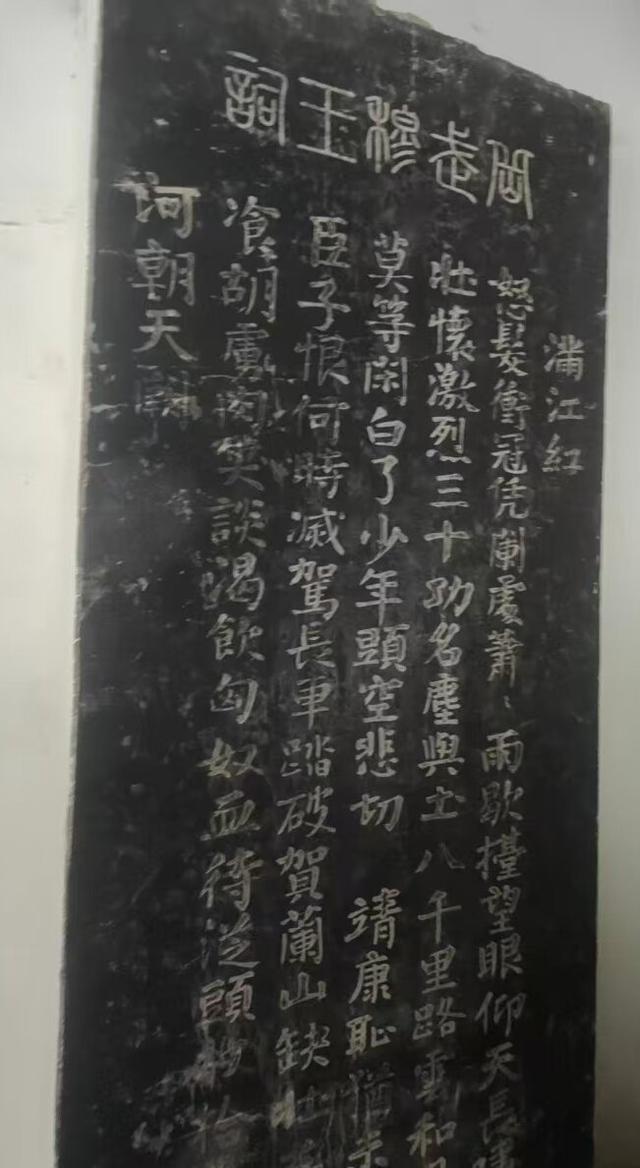 岳武穆王詞
滿江紅
怒髮衝冠凭闌處蕭〻雨歇擡望眼仰天長
壯懷激烈三十功名塵與土八千里路雲和月
莫等閑白了少年頭空悲切　靖康恥猶未
臣子恨何時滅駕長車踏破賀蘭山缺壯
飡胡虜肉笑談渴飲匈奴血待從頭收拾
河朝天闕